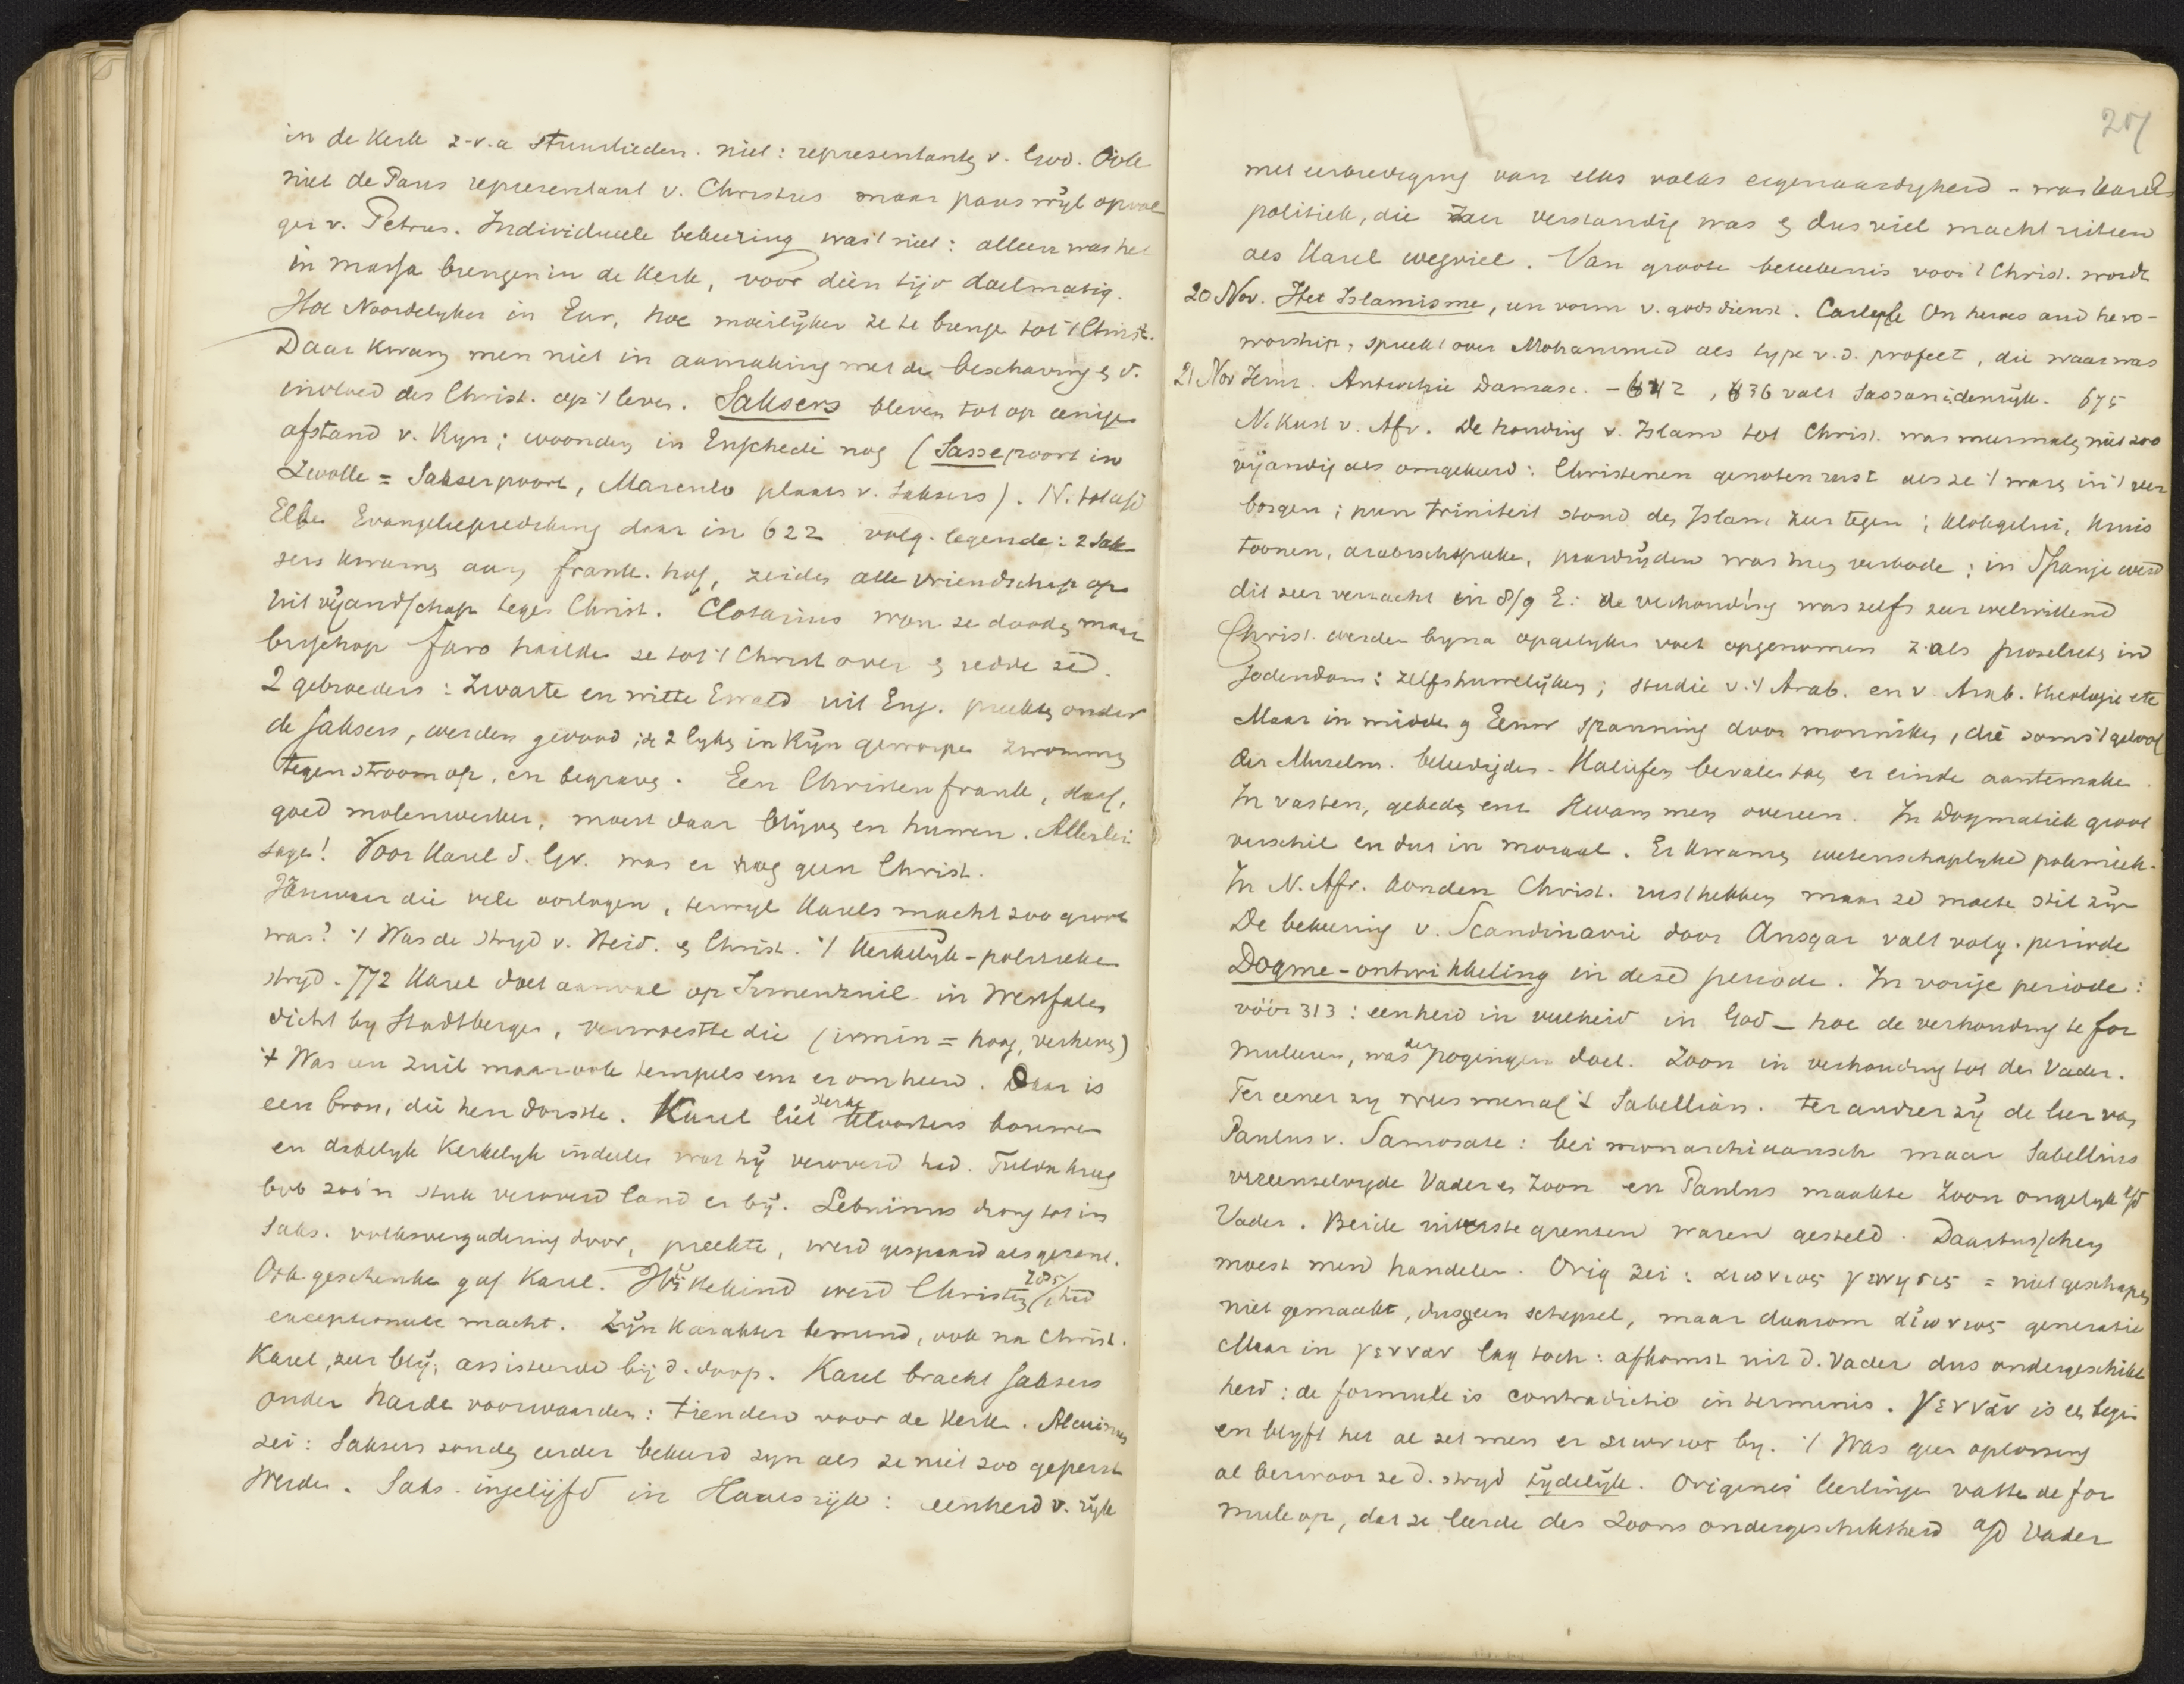 in de Kerk z.v.a stuurlieden. niet: representantẽ v. God. Ook
niet de Paus representant v. Christus maar paus wijl opvol
ger v. Petrus. Individueele bekeering was 't niet: alleen was het
in massa brengen in de Kerk, voor dien tijd doelmatig.
Hoe Noordelyker in Eur, hoe moeilijker ze te breng tot 't Christ.
Daar kwam men niet in aanraking met de beschaving & d.
invloed des Christ. op 't leven. Saksers bleven tot op eenige
afstand v. Ryn; woonden in Enschedé nog (Sassepoort in
Zwolle = Sakserpoort, Marenlo plaats v. Saksers). N. tot a/d
Elbe Evangelieprediking daar in 622 volg. legende: 2 Sak
sers kwamen aan frank. hof, zeiden alle vriendschap op
uit vijandschap tegen Christ. Clotarius won ze dooden maar
bisschop Faro haalde ze tot 't Christ over & redde ze.
2 gebroeders: Zwarte en witte Ewald uit Eng. preekten onder
de Saksers, werden gedood; de 2 lyken in Rijn geworpen zwommen
tegen stroom op, en begraven. Een Christen frank, slaaf,
goed molenwerker, moest daar blijven en huwen. Allerlei
sage! Voor Karel d. Gr. was er nog geen Christ.
Vanwaar die vele oorlogen, terwyl Karels macht zoo groot
was? 't Was de stryd v. Heid. & Christ. 't Kerkelijk-politieke
stryd. 772 Karel doet aanval op Irmenzuil in Westfalen
dicht by Stadtbergen, verwoestte die (irmin = hoog, verheven)
't Was een zuil maar ook tempels enz er om heen. Daar is
een bron, die hen dorstte. Karel liet sterke kloosters bouwen
en dadelyk Kerkelyk indeelen wat hij veroverd had. Fulda kreeg
ook zoo'n stuk veroverd land er bij. Lebuinus drong tot in
Saks. volksvergadering door, preekte, werd gespaard als gezant.
Ook geschenken gaf Karel. Wittekind werd Christen 785/, had
exceptioneele macht. Zijn Karakter temend, ook na Christ.
Karel, zeer blij, assisteerde bij d. doop. Karel bracht Saksers
onder harde voorwaarden: tienden voor de Kerk. Alcuinus
zei: Saksers zouden eerder bekeerd zyn als ze niet zoo geperst
werden. Saks. ingelijfd in Karelsrijk: eenheid v. rijk
27
met eerbiediging van elks volks eigenaardigheid - was Karels
politiek, die zeer verstandig was & dus viel macht uiteen
als Karel wegviel. Van groote beteekenis voor 't Christ. wordt
20 Nov. Het Islamisme, een vorm v. godsdienst. Carlyle On heroes and hero-
worship, spreekt over Mohammed als type v.d. profeet, die waar was
21 Nov Jeruz. Antiochie Damasc. - 642, 636 valt Sassanidenrijk. 675
N. Kust v. Afr. De houding v. Islam tot Christ. was meermalen niet zoo
vijandig als omgekeerd: Christenen genoten rust als ze 't ware in 't ver
borgen; punt triniteit stond den Islam zeer tegen; klokgelui, kruis
toonen, arabisch spreken, paardrijden was hen verboden; in Spanje werd
dit zeer verzacht in 8/9 E: de verhouding was zelfs zeer welwillend
Christ. werden byna op gelyken voet opgenomen z.als proselieten in
Jodendom: zelfs huwelijken; studie v. 't Arab. en v. Arab. theologie etc
Maar in midden 9 Eeuw spanning door monniken, die soms 't geloof
der Muzelm. beleedigden. Kaliefen bevalen toen er einde aan te maken.
In vasten, gebeden enz kwam men overeen. In dogmatiek groot
verschil en dus in moraal. Er kwam wetenschaplyke polemiek.
In N. Afr. konden Christ. rust hebben maar ze moeten stil zijn
De bekeering v. Scandinavie door Ansgar valt volg. periode
Dogme-ontwikkeling in deze periode. In vorige periode:
vóór 313: eenheid in veelheid in God - hoe de verhouding te for
muleeren, was der pogingen doel. Zoon in verhouding tot den Vader.
Ter eener zy wees men af 't Sabellian. Ter andrer zij de leer van
Paulus v. Samosate: bei monarchiaansch maar Sabellius
vereenzelvigde Vader en Zoon en Paulus maakte Zoon ongelijk a/d
Vader. Beide uiterste grenzen waren gesteld. Daartusschen
moest men handelen. Orig zei: αιωνιος γεννησις = niet geschapen
niet gemaakt, dus geen schepsel, maar daarom αιωνιος generatie
Maar in γενναν lag toch: afkomst uit d. Vader dus ondergeschikt
heid: de formule is contradictio in terminis. γενναν is een begin
en blijft het al zet men er αιωνιος by. 't Was geen oplossing
al bezwoor ze d. stryd tijdelijk. Origenes leerlingen vatten de for
mule op, dat ze leerde des Zoons ondergeschiktheid a/d Vader